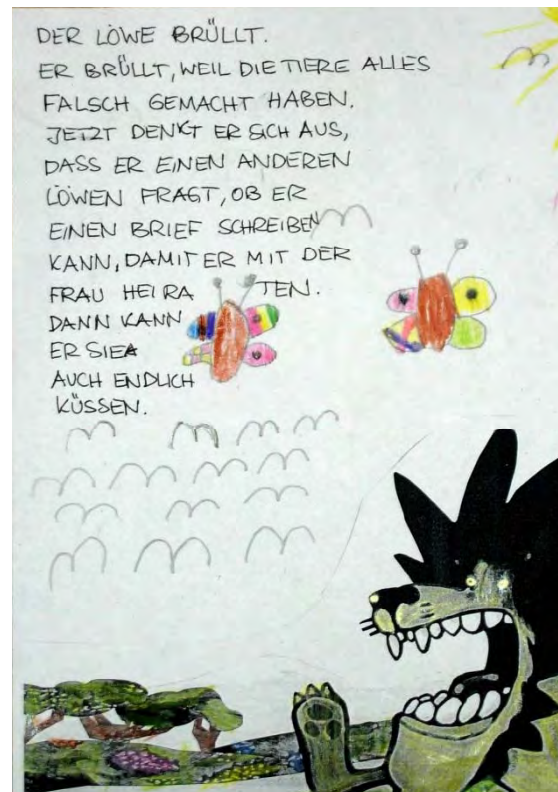 DER LÖWE BRÜLLT.
ER BRÜLLT, WEIL DIE TIERE ALLES
FALSCH GEMACHT HABEN.
JETZT DENKT ER SICH AUS,
DASS ER EINEN ANDEREN
LÖWEN FRAGT, OB ER
EINEN BRIEF SCHREIBEN
KANN, DAMIT ER MIT DER
FRAU HEIRA TEN.
DANN KANN
ER SIE
AUCH ENDLICH
KÜSSEN.